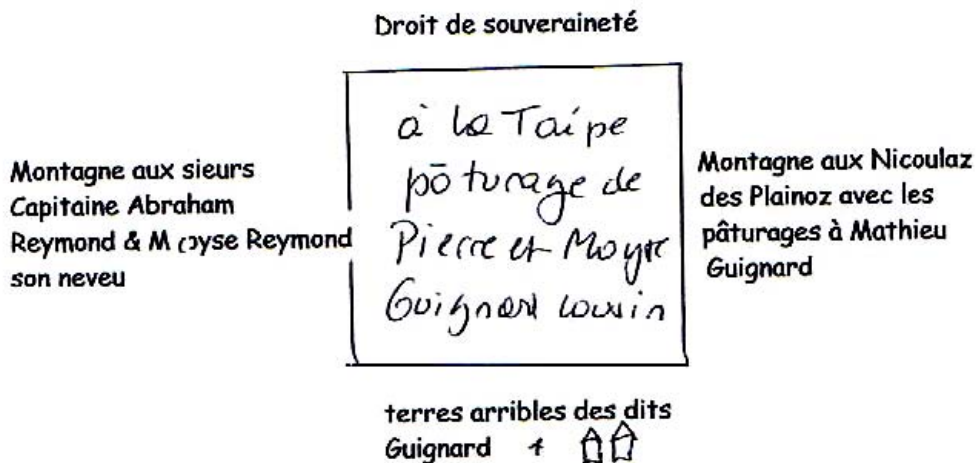 Droit de souveraineté
Montagne aux sieurs
Capitaine Abraham
Reymond & Moyse Reymond
son neveu
à la Taipe
pâturage de
Pierre et Moyse
Guignard cousin
Montagne aux Nicoulaz
des Plainoz avec les
pâturages à Mathieu
Guignard
terres arribles des dits
Guignard +